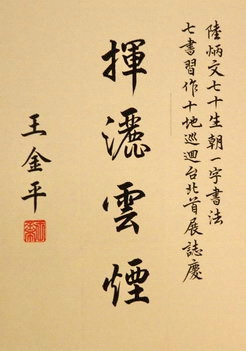 陸炳文七十生朝一字書法
七書習作十地巡迴台北首展誌慶
揮灑雲煙
王金平